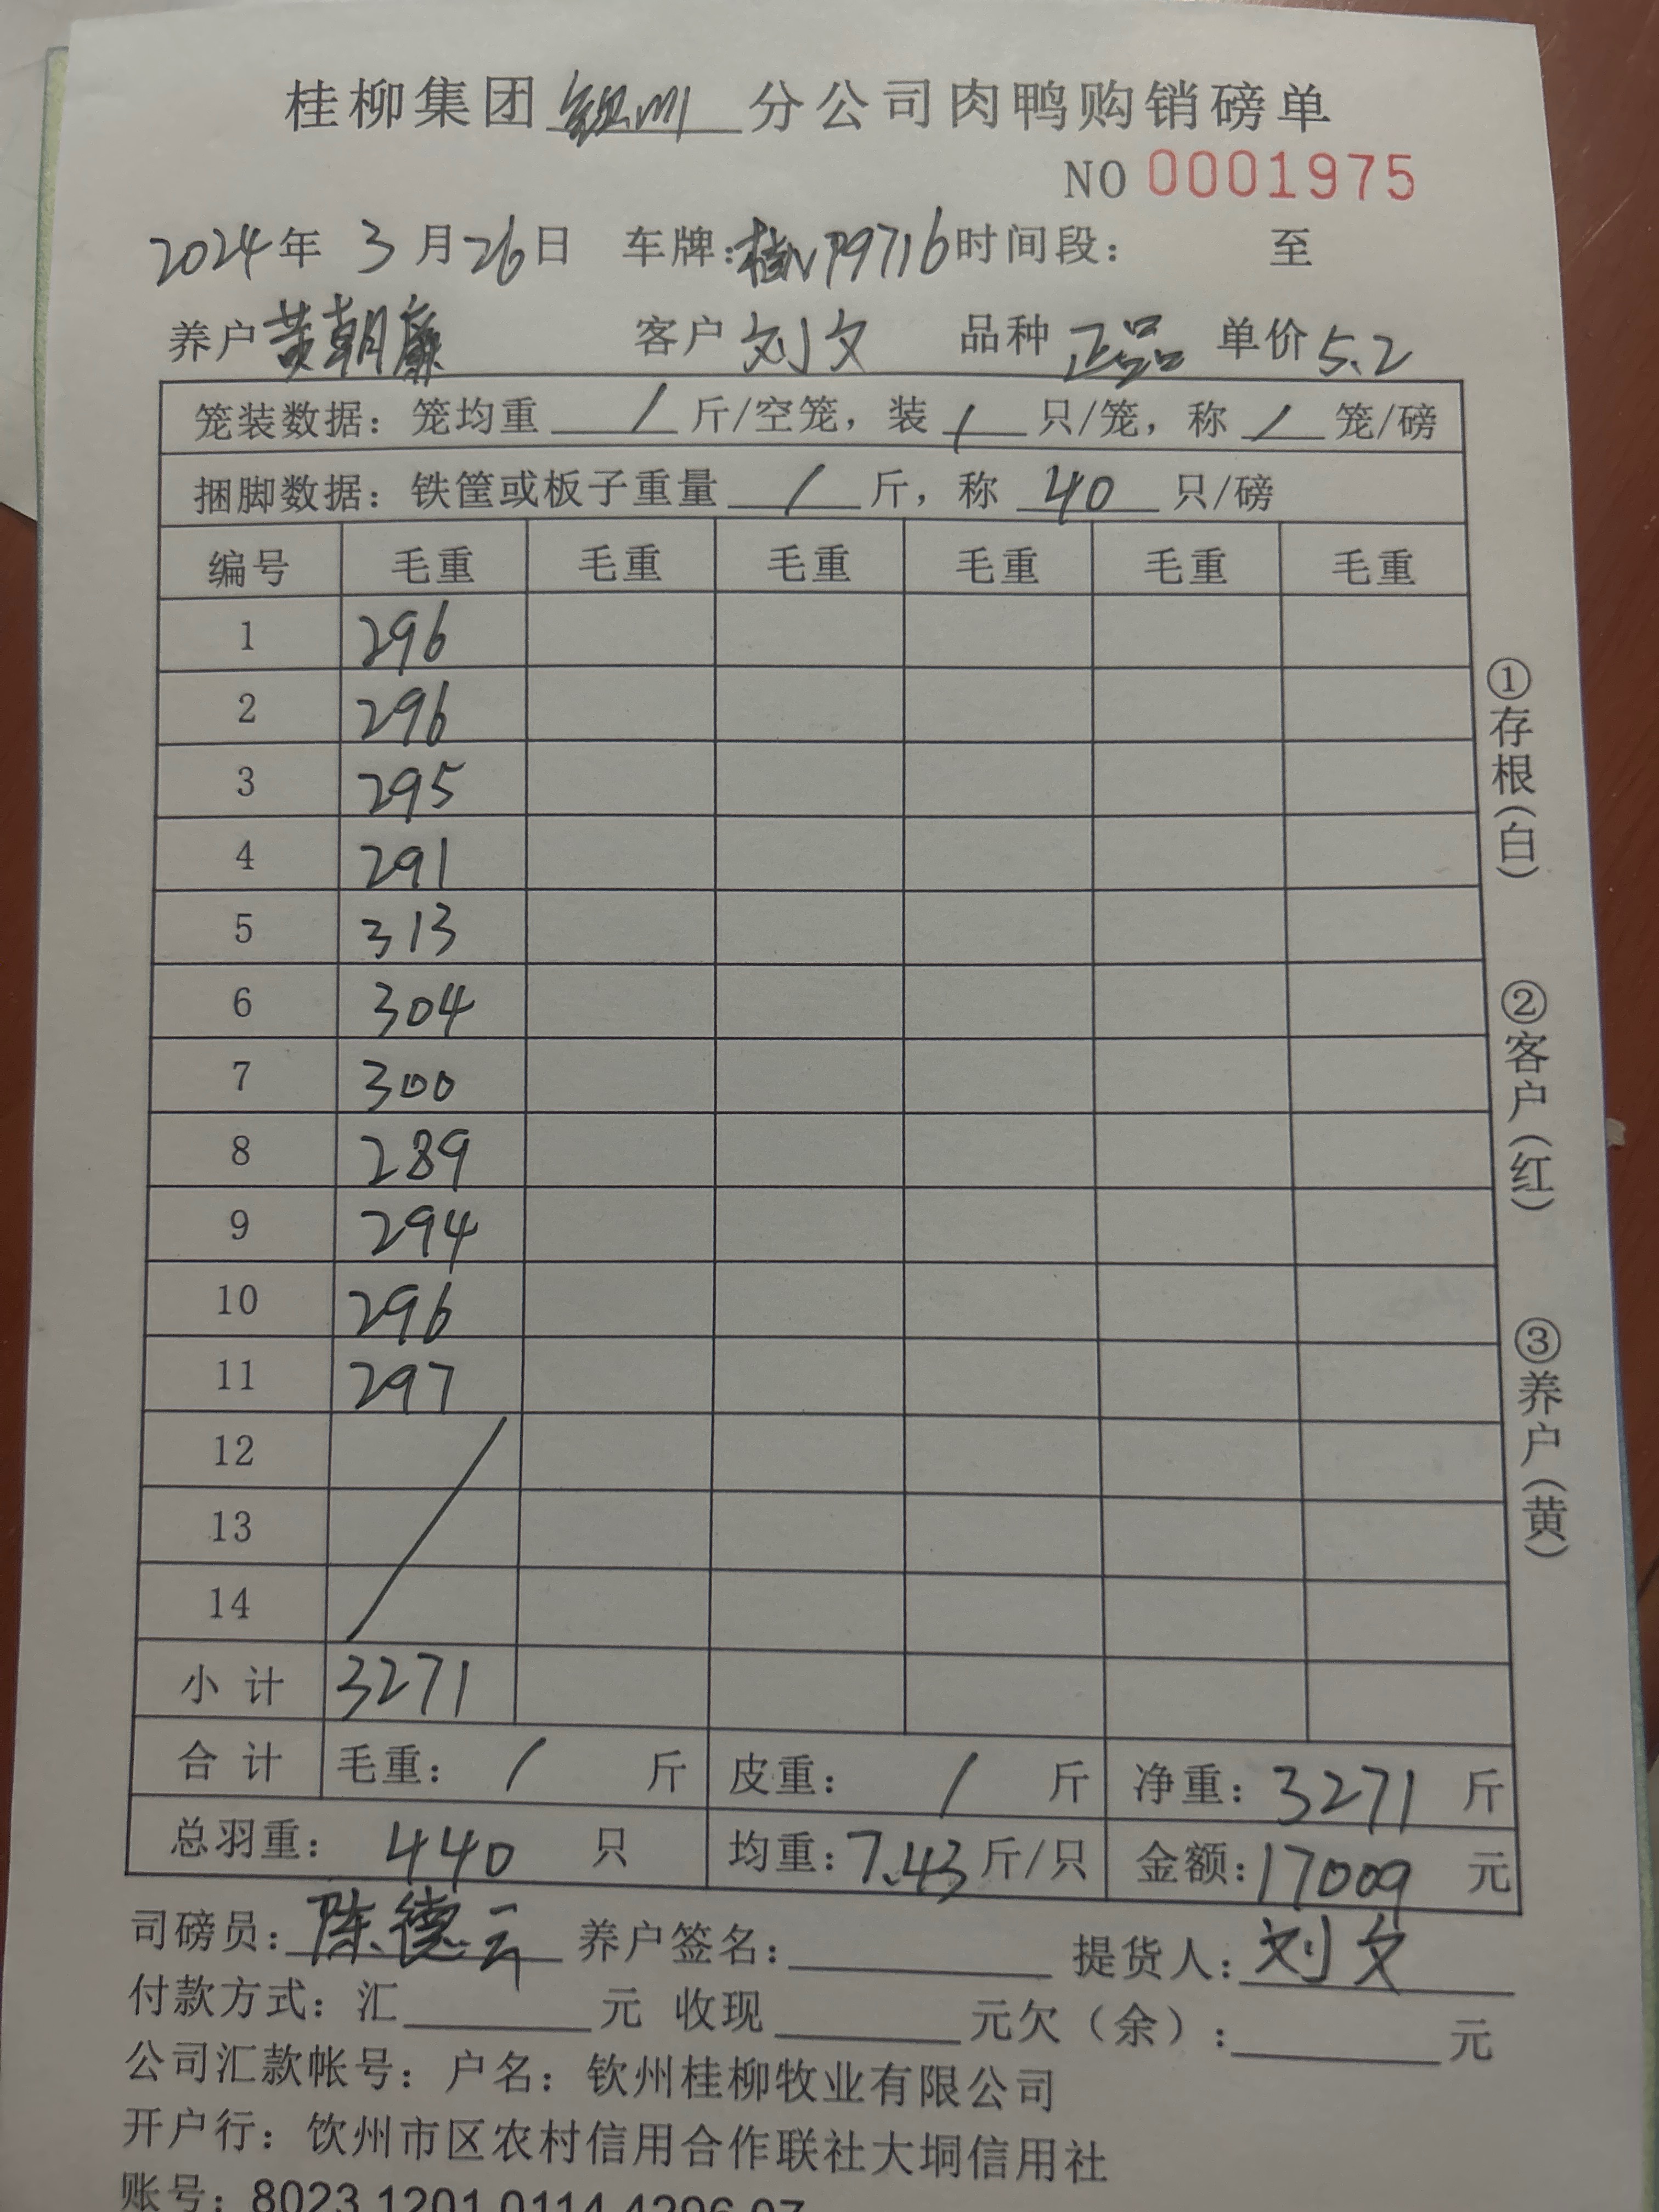 桂柳集团钦州分公司肉鸭购销磅单
NO 0001975
2024年 3月26日 车牌:桂NP9716时间段: 至
养户黄朝廉 客户刘文 品种正品 单价5.2
笼装数据:笼均重 / 斤/空笼,装 / 只/笼,称 / 笼/磅
捆脚数据:铁筐或板子重量 / 斤,称 40 只/磅
编号 毛重 毛重 毛重 毛重 毛重 毛重
1 296
2 296
3 295
4 291
5 313
6 304
7 300
8 289
9 294
10 296
11 297
12
13
14
小计 3271
合计 毛重: / 斤 皮重: / 斤 净重:3271 斤
总羽重: 440 只 均重:7.43斤/只 金额:17009 元
司磅员:陈德云 养户签名: 提货人:刘文
付款方式:汇 元 收现 元欠(余): 元
公司汇款帐号:户名:钦州桂柳牧业有限公司
开户行:钦州市区农村信用合作联社大垌信用社
账号:8023 1201 0114 4296 07
①存根(白)
②客户(红)
③养户(黄)